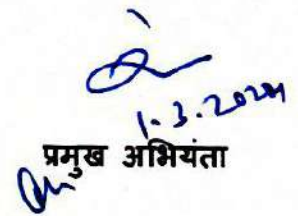 1.3.2024
प्रमुख अभियंता